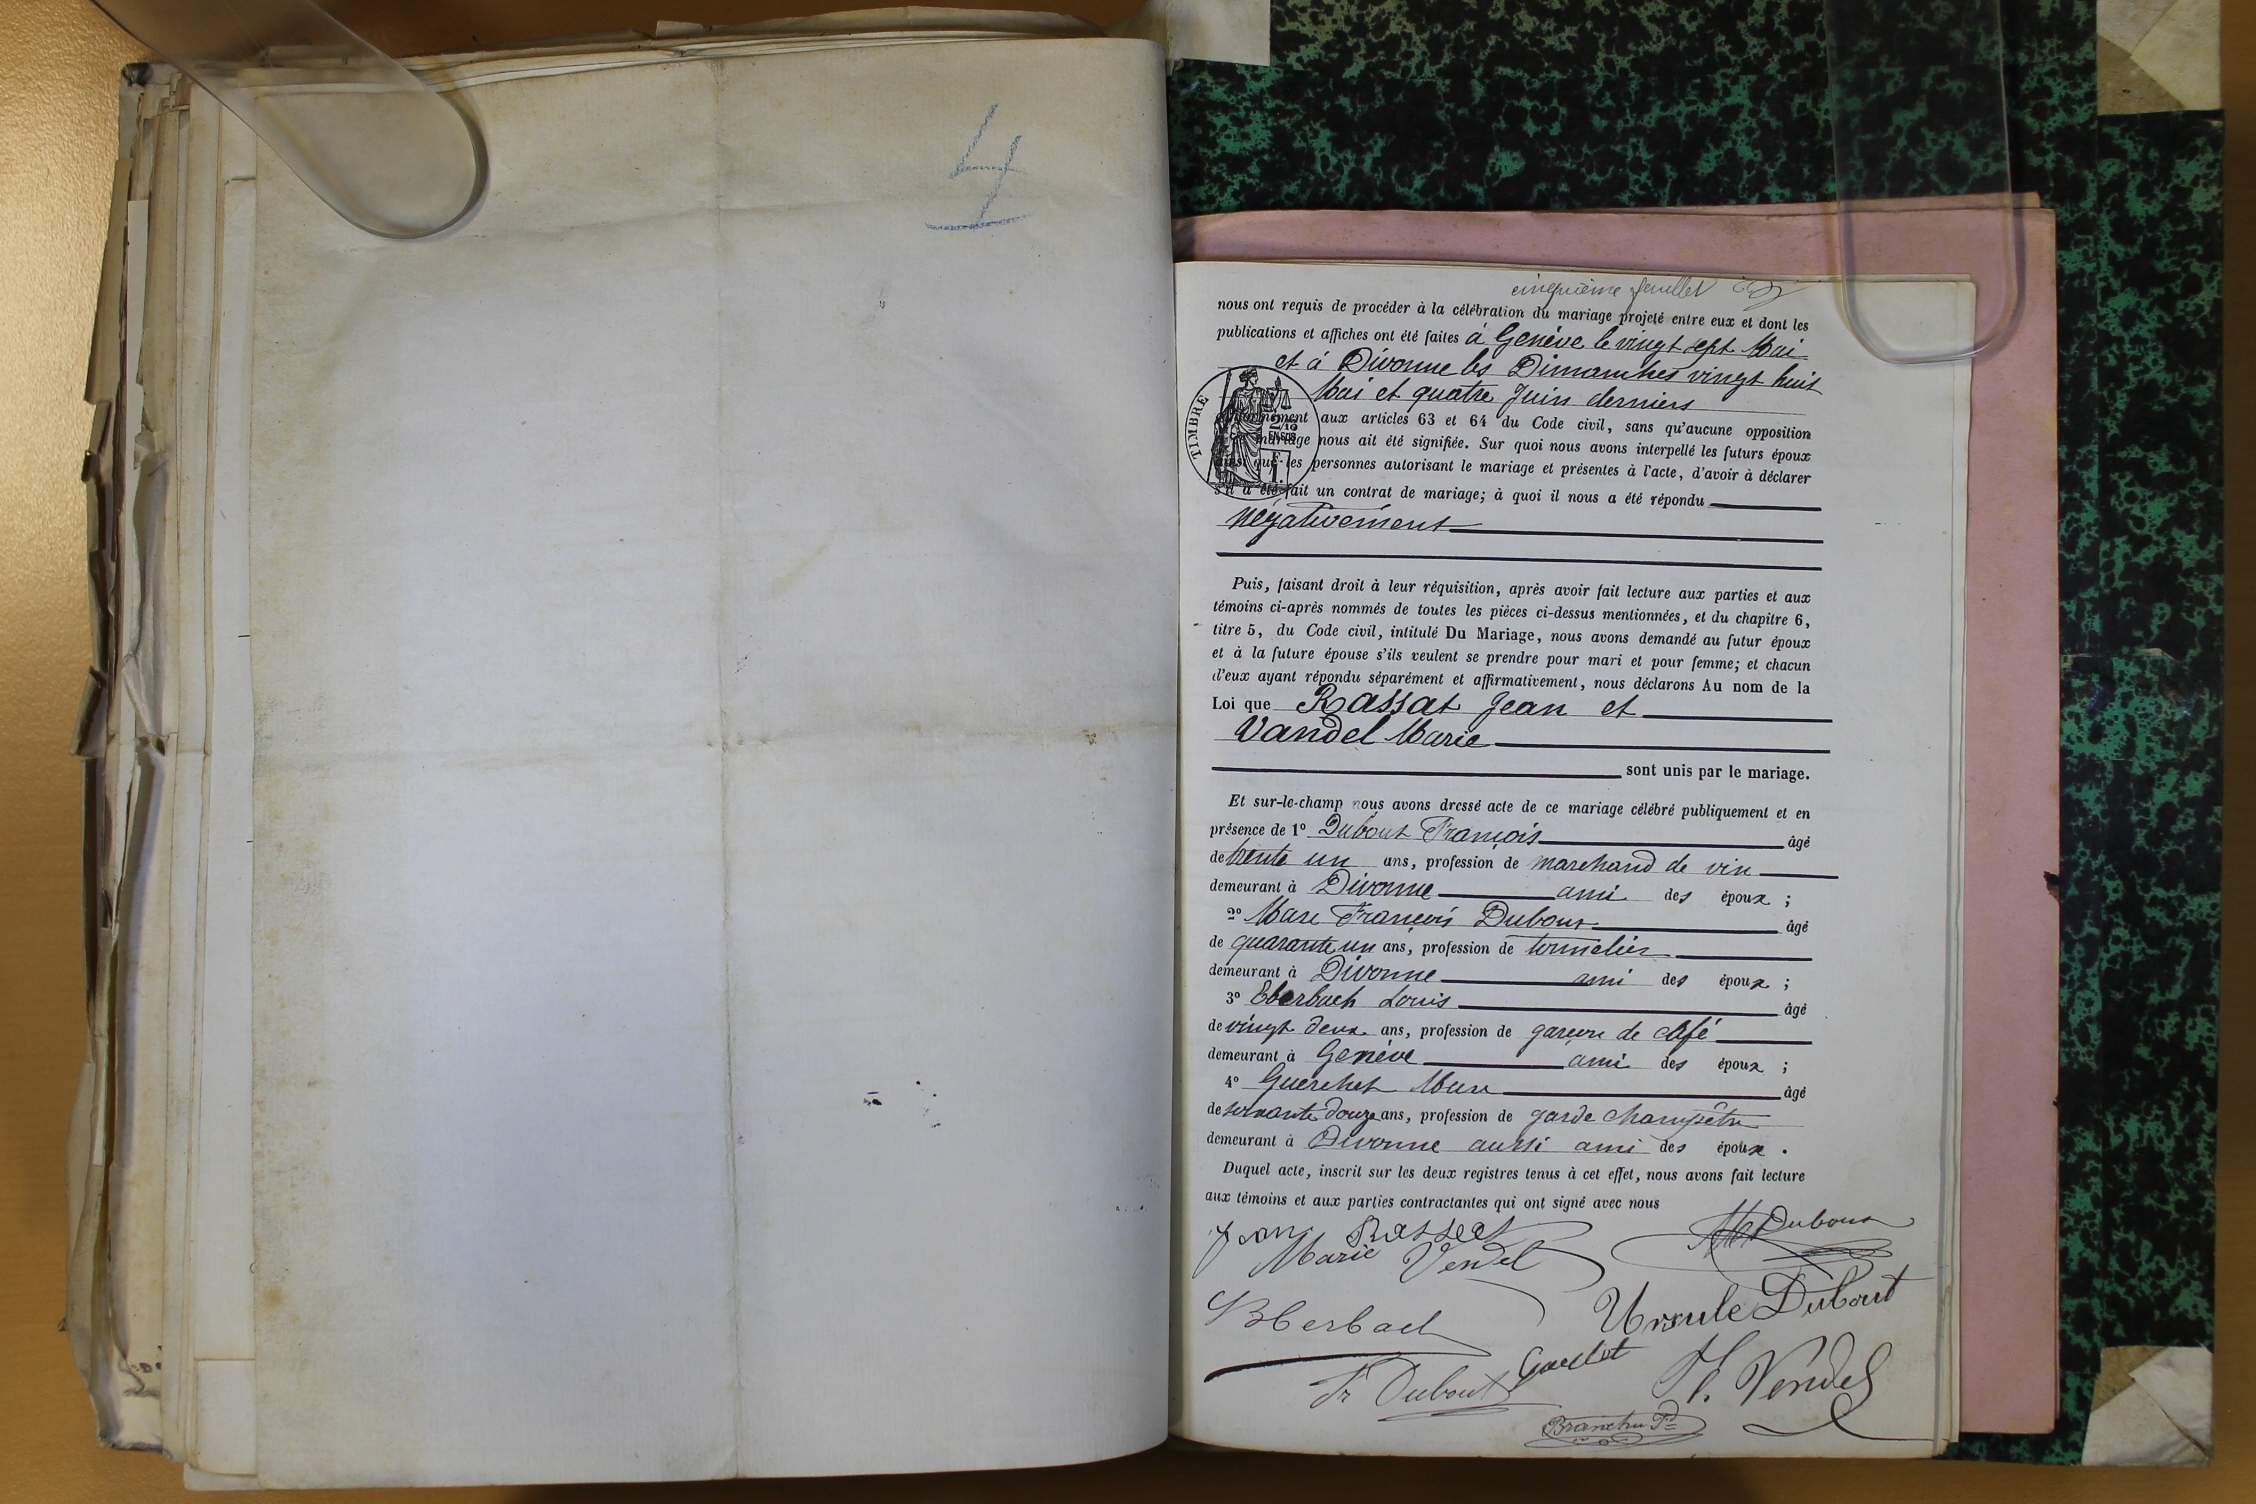 4
cinquième feuillet
nous ont requis de procéder à la célébration du mariage projeté entre eux et dont les
publications et affiches ont été faites à Genève le vingt sept Mai
et à Divonne les Dimanches vingt huit
Mai et quatre Juin derniers
conformément aux articles 63 et 64 du Code civil, sans qu'aucune opposition
mariage nous ait été signifiée. Sur quoi nous avons interpellé les futurs époux
ainsi que les personnes autorisant le mariage et présentes à l'acte, d'avoir à déclarer
s'il a été fait un contrat de mariage; à quoi il nous a été répondu
TIMBRE
négativement
Puis, faisant droit à leur réquisition, après avoir fait lecture aux parties et aux
témoins ci-après nommés de toutes les pièces ci-dessus mentionnées, et du chapitre 6,
titre 5, du Code civil, intitulé Du Mariage, nous avons demandé au futur époux
et à la future épouse s'ils veulent se prendre pour mari et pour femme; et chacun
d'eux ayant répondu séparément et affirmativement, nous déclarons Au nom de la
Loi que Rassat Jean et
Vandel Marie
sont unis par le mariage.
Et sur-le-champ nous avons dressé acte de ce mariage célébré publiquement et en
présence de 1º Dubout François âgé
de trente un ans, profession de marchand de vin
demeurant à Divonne ami des époux ;
2º Marc François Dubout âgé
de quarante un ans, profession de tonnelier
demeurant à Divonne ami des époux ;
3º Eberbach Louis âgé
de vingt deux ans, profession de garçon de café
demeurant à Genève ami des époux ;
4º Guerchet Marc âgé
de soixante douze ans, profession de garde champêtre
demeurant à Divonne aussi ami des époux .
Duquel acte, inscrit sur les deux registres tenus à cet effet, nous avons fait lecture
aux témoins et aux parties contractantes qui ont signé avec nous
Jean Rassat
Dubout
Marie Vendel
Ursule Dubout
Eberbach
Fr Dubout
Vendel
Branchu